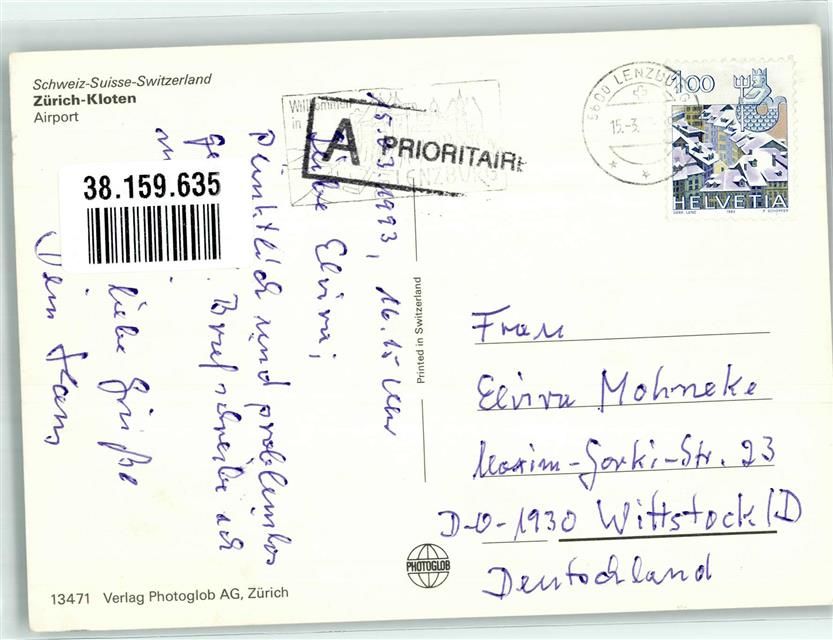 Schweiz-Suisse-Switzerland
Zürich-Kloten
Airport
38.159.635
15.03.1993, 16.15 Uhr
Liebe Elvira,
Pünktlich und problemlos
Brief schreibe ich
liebe Grüße
Dein Hans
Willkommen
in
LENZBURG
A PRIORITAIRE
5600 LENZBURG
15.-3.
100
HELVETIA
Printed in Switzerland
Frau
Elvira Mohneke
Maxim-Gorki-Str. 23
D-O-1930 Wittstock/D
Deutschland
PHOTOGLOB
13471 Verlag Photoglob AG, Zürich